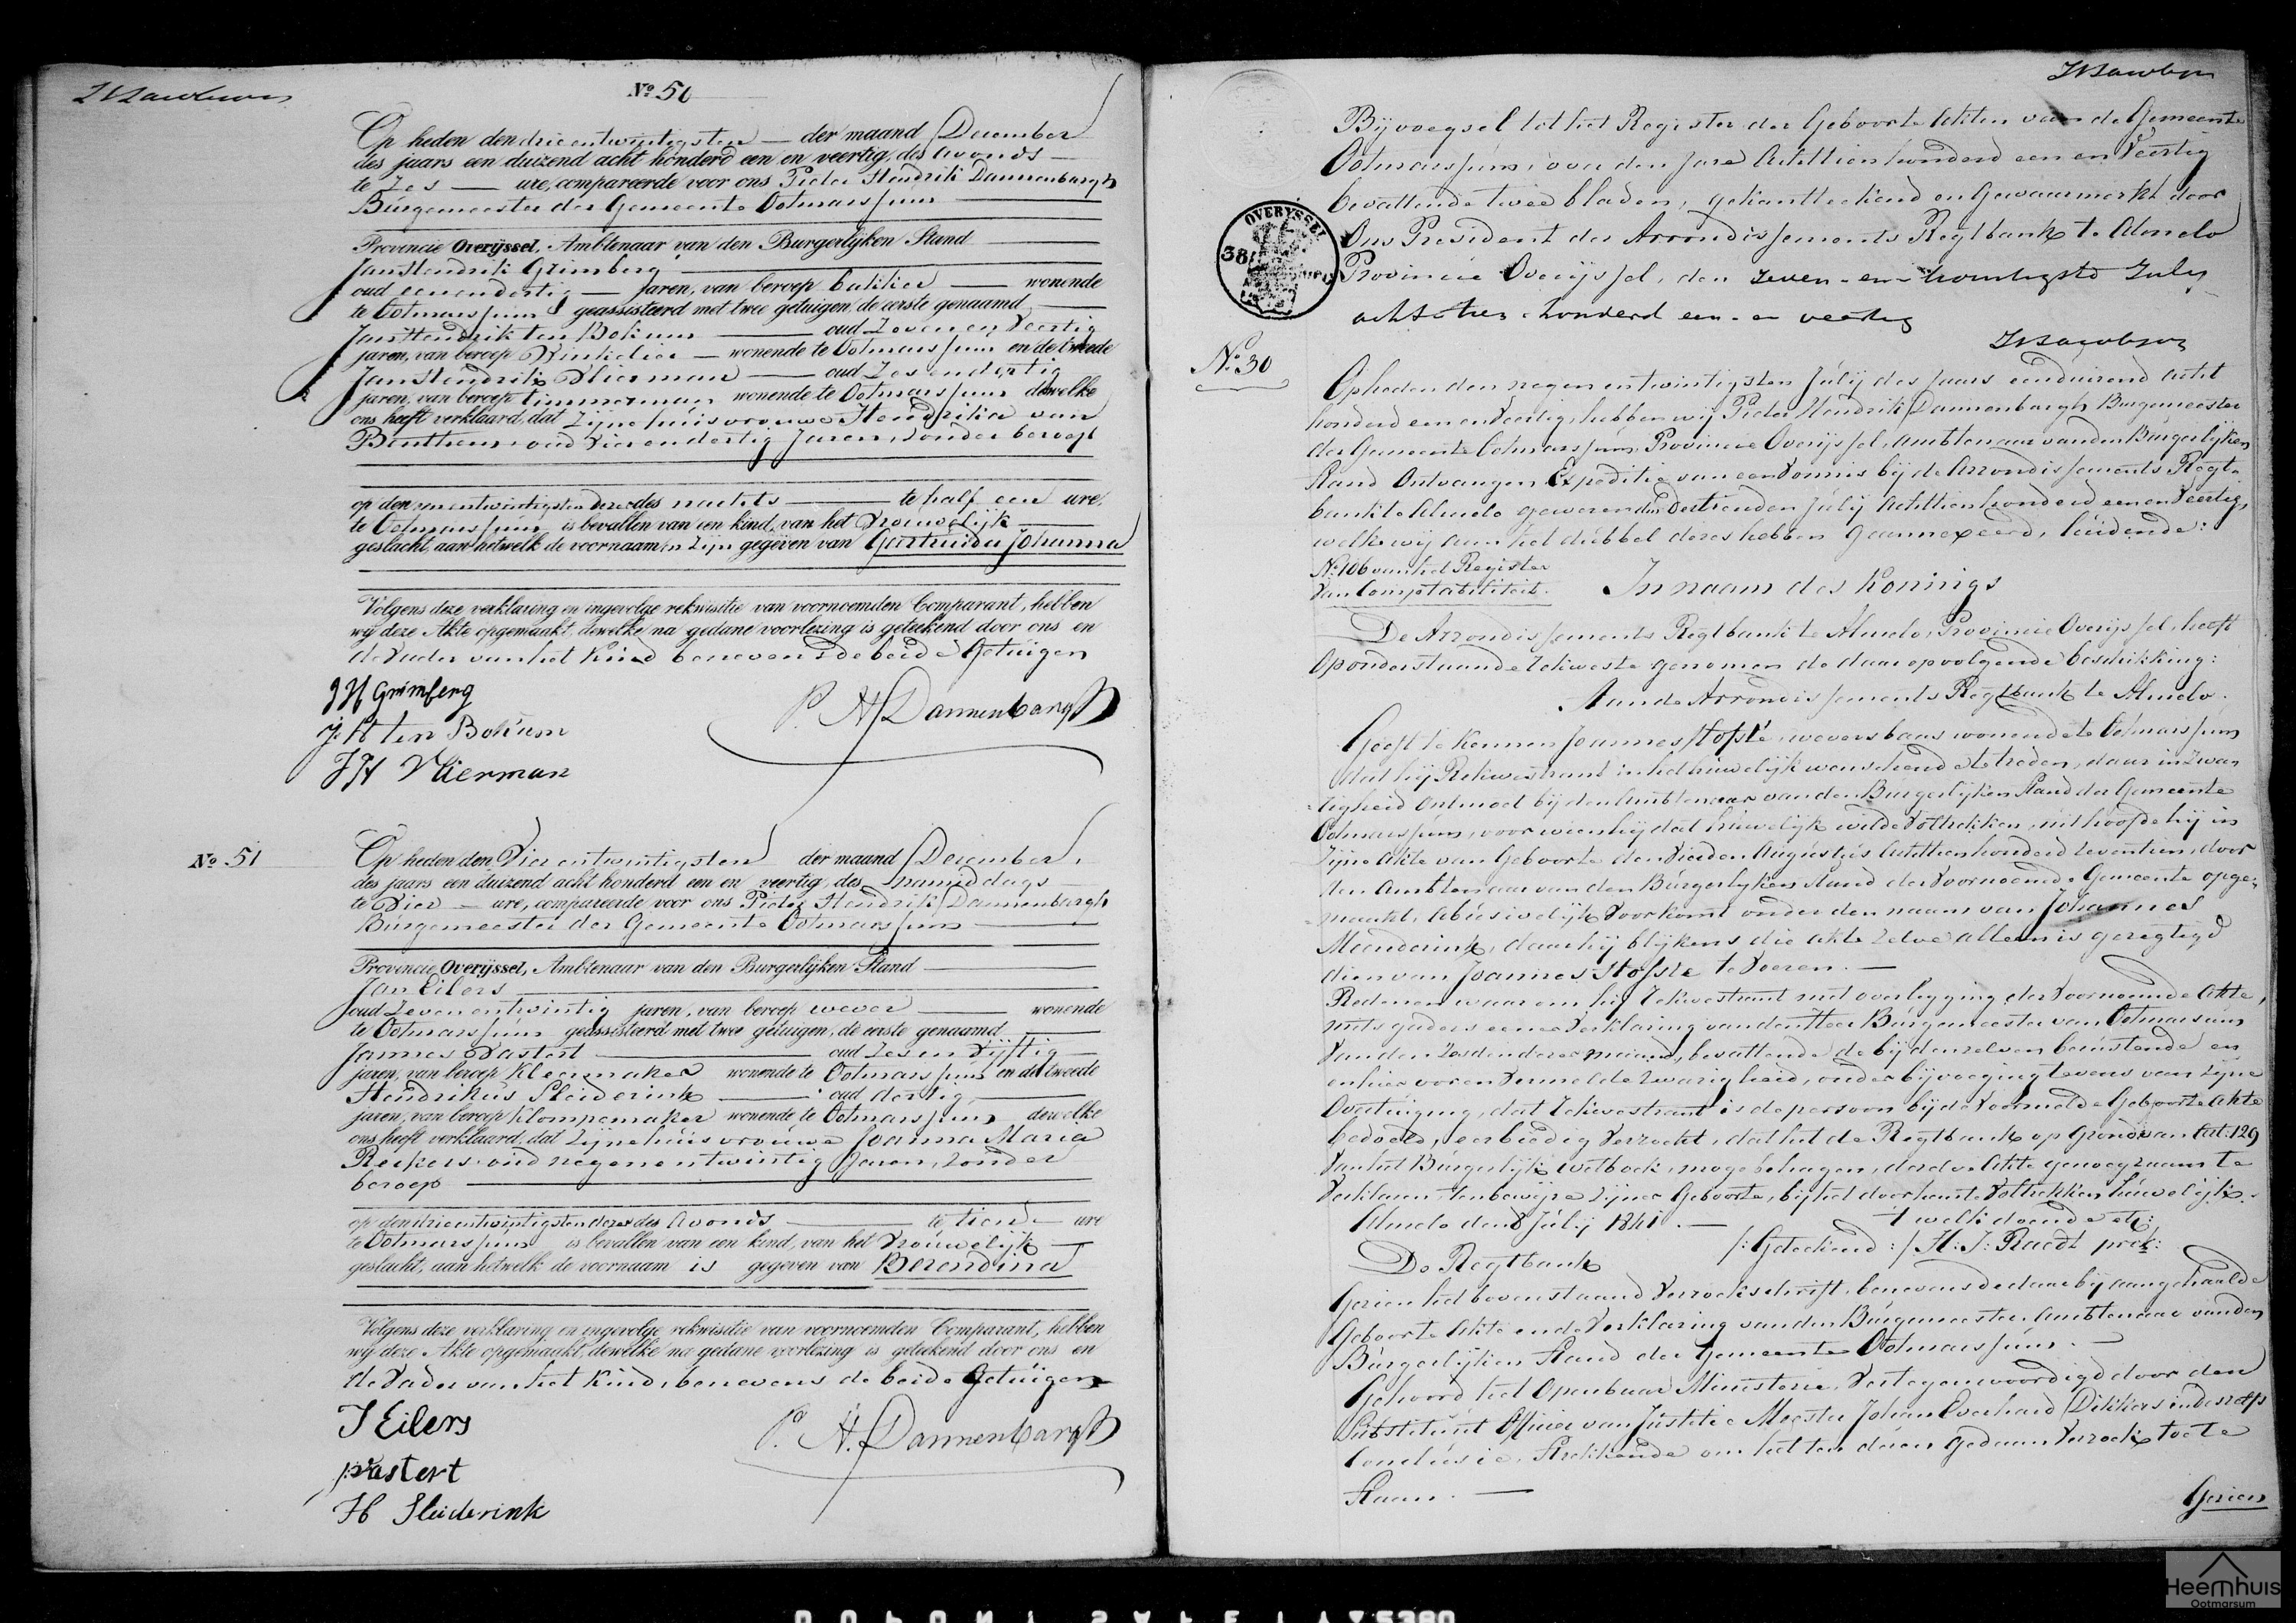 JWJacobson
No 50
Op heden den drie entwintigsten der maand December
des jaars een duizend acht honderd een en veertig, des avonds
te Zes ure, compareerde voor ons Pieter Hendrik Dannenbargh
Burgemeester der Gemeente Ootmarssum
Provincie Overijssel, Ambtenaar van den Burgerlijken Stand
Jan Hendrik Grimberg
oud eenendertig jaren, van beroep bakker wonende
te Ootmarssum geassisteerd met twee getuigen, de eerste genaamd
Jan Hendrik ten Bokum oud Zeven en Veertig
jaren, van beroep Winkelier wonende te Ootmarssum en de tweede
Jan Hendrik Vlierman oud Zesendertig
jaren, van beroep timmerman wonende te Ootmarssum dewelke
ons heeft verklaard, dat Zijne huisvrouwe Hendrika van
Benthem oud Vierendertig Jaren, zonder beroep
op den een entwintigsten dezer des nachts te half een ure,
te Ootmarssum is bevallen van een kind, van het Vrouwelijk
geslacht, aan hetwelk de voornaamen Zijn gegeven van Geertruida Johanna
Volgens deze verklaring en ingevolge rekwisitie van voornoemden Comparant, hebben
wij deze Akte opgemaakt, dewelke na gedane voorlezing is geteekend door ons en
de Vader van het Kind benevens de beide Getuigen
JH Grimberg
P. H. Dannenbargh
J: H ten Bokum
JH Vlierman
No 51
Op heden den Vier entwintigsten der maand December,
des jaars een duizend acht honderd een en veertig, des namiddags
te Vier ure, compareerde voor ons Pieter Hendrik Dannenbargh
Burgemeester der Gemeente Ootmarssum
Provincie Overijssel, Ambtenaar van den Burgerlijken Stand
Jan Eilers
oud Zevenentwintig jaren, van beroep wever wonende
te Ootmarssum geassisteerd met twee getuigen, de eerste genaamd
Jannes Vastert oud Zesen Vijftig
jaren, van beroep Kleermaker wonende te Ootmarssum en de tweede
Hendrikus Sleiderink oud dertig
jaren, van beroep Klompemaker wonende te Ootmarssum dewelke
ons heeft verklaard, dat Zijne huisvrouwe Joanna Maria
Reekers oud negenentwintig Jaren, zonder
beroep
op den drieentwintigsten dezer des Avonds te tien ure
te Ootmarssum is bevallen van een kind, van het Vrouwelijk
geslacht, aan hetwelk de voornaam is gegeven van Berendina
Volgens deze verklaring en ingevolge rekwisitie van voornoemden Comparant, hebben
wij deze Akte opgemaakt, dewelke na gedane voorlezing is geteekend door ons en
de Vader van het Kind, benevens de beide Getuigen
J Eilers
P. H. Dannenbargh
J Vastert
H Sleiderink
JWJacobson
Bijvoegsel tot het Register der Geboorte Akten van de Gemeente
Ootmarssum, over den Jare Achttienhonderd een en Veertig
bevattende twee bladen, gekantteekend en Gewaarmerkt door
Ons President der Arrondissements Regtbank te Almelo
Provincie Overijssel, den zeven-en-twintigste July
achttien honderd een-en veertig
JWJacobson
OVERYSSEL
38
No 30
Op heden den negen entwintigsten Julij des Jaars eenduizend acht
honderd eenenVeertig, hebben wij Pieter Hendrik Dannenbargh Burgemeester
der Gemeente Ootmarssum, Provincie Overijssel, Ambtenaar van den Burgerlijken
Stand Ontvangen Expeditie van een Vonnis bij de Arrondissements Regt-
bank te Almelo gewezen den Dertienden Julij Achttienhonderd eenenVeertig,
welke wij aan het dubbel dezes hebben geannexeerd, luidende:
No 106 van het Register
van Comptabiliteit.
In naam des Konings
De Arrondissements Regtbank te Almelo, Provincie Overijssel, heeft
op onderstaande Rekweste genomen de daarop volgende beschikking:
Aan de Arrondissements Regtbank te Almelo.
Geeft te kennen Joannes Hofste, weversbaas wonende te Ootmarssum
dat hij Rekwestrant in het huwelijk wenschende te treden, daar in Zwa-
righeid Ontmoet bij den Ambtenaar van den Burgerlijken Stand der Gemeente
Ootmarssum, voor wien hij dat huwelijk wilde Voltrekken, uit hoofde hij in
Zijne Akte van Geboorte den Vierden Augustus Achttienhonderd zeventien, door
den Ambtenaar van den Burgerlyken Stand der Voornoemde Gemeente opge-
maakt, abusivelijk Voorkomt onder den naam van Johannes
Meenderink, daar hij blijkens die akte Zelve alleen is geregtigd
dien van Joannes Hofste te Voeren.
Redenen waarom hij Rekwestrant met overlegging der Voornoemde Akte,
mitsgaders eener Verklaring van den Heer Burgemeester van Ootmarssum
Van den Zesden dezer maand, bevattende de bij denzelven bestaande en
en hier voren Vermelde Zwarigheid, onder bijvoeging tevens van Zijne
Overtuiging, dat Rekwestrant is de persoon bij de Voormelde Geboorte Akte
bedoeld, eerbiedig Verzoekt, dat het de Regtbank op Grond van Art: 129
Van het Burgerlijk wetboek, moge behagen, dezelve Akte genoegzaam te
Verklaren, ten bewijze Zijner Geboorte, bij het door hem te Voltrekken huwelijk.
Almelo den 8 Julij 1841.
't welk doende etc:
/:Geteekend:/ H: J: Raedt prok:
De Regtbank
Gezien het bovenstaand Verzoekschrift, benevens de daar bij aangehaalde
Geboorte Akte en de Verklaring van den Burgemeester Ambtenaar van den
Burgerlijken Stand der Gemeente Ootmarssum.
Gehoord het Openbaar Ministerie, Vertegenwoordigd door den
Substituut Officier van Justitie Meester Johan Everhard Dikkers in deszelfs
Conclusie, Strekkende om het ten dezen gedaan Verzoek toete
Staan.
Gezien
Heemhuis
Ootmarsum